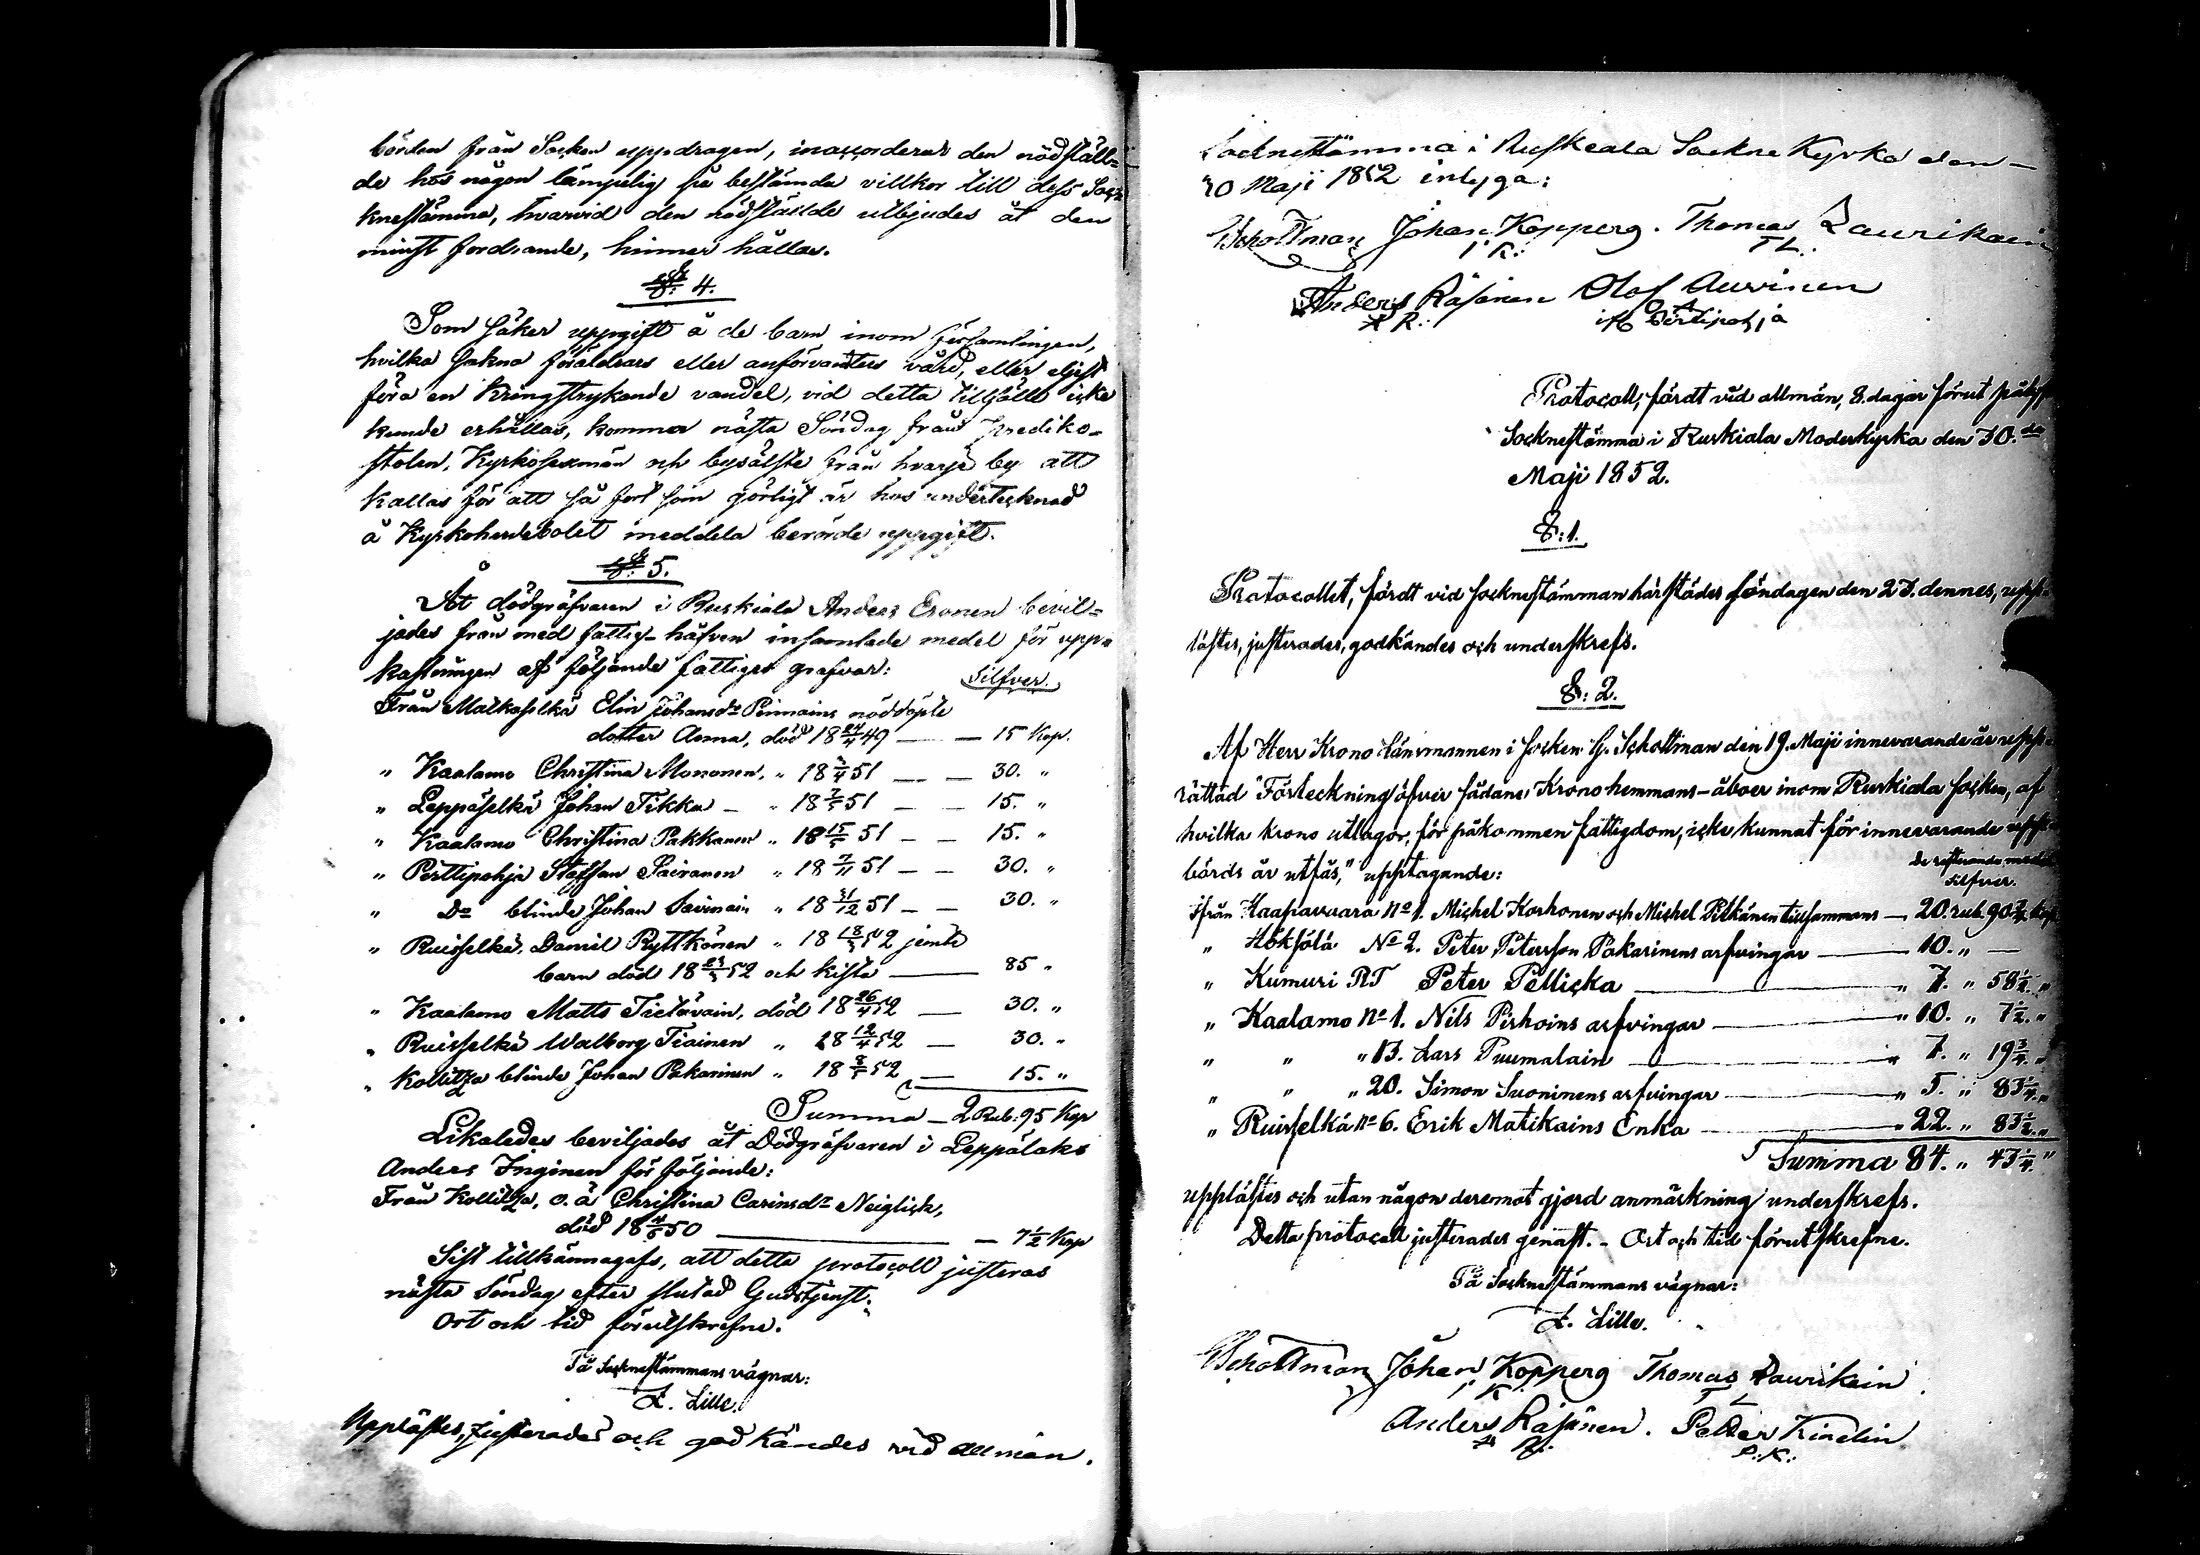 börden från Socken uppdragen, inaccorderas den nödställ-
de hos någon lämpelig på bestämda villkor till dess Soc-
knestämma, hvarvid den nödstälde utbjudes åt den
minst fordrande, hinner hållas.
§: 4.
Som säker uppgift å de barn inom församlingen,
hvilka sakna föräldrars eller anförvanters vård, eller eljest
föra en kringstrykande vandel, vid detta tillfälle icke
kunde erhållas, kommer nästa Söndag från prediko-
stolen, Kyrkosexmän och byäldste från hvarje by att
kallas för att så fort som görligt är hos undertecknad
å Kyrkoherdebolet meddela berörde uppgift.
§: 5.
Åt dödgräfvaren i Ruskiala Anders Esonen bevil-
jades från med fattig-håfven insamlade medel för upp-
kastningen af följande fattiges grafvar:
Silfver.
Från Matkaselkä Elin Johansdr Pinnains nöddöpte
dotter Anna, död 18 24/4 49 — — 15 Kop.
" Kaalamo Christina Mononen, " 18 2/4 51 — — 30. "
" Leppäselkä Johan Tikka — " 18 7/5 51 — — 15. "
" Kaalamo Christina Pakkanen " 18 15/5 51 — — 15. "
" Pirttipohja Staffan Sairanen " 18 7/11 51 — — 30. "
" Do blinde Johan Savinain " 18 31/12 51 — — 30. "
" Ruisselkä Daniel Ryttkönen " 18 18/3 52 jemte
barn död 18 23/3 52 och kista — 85 "
" Kaalamo Matts Tietäväin, död 18 26/4 52 — 30. "
" Ruisselkä Walborg Tiainen " 18 12/4 52 — 30. "
" Kollitza blinde Johan Pakarinen " 18 8/5 52 — 15. "
Summa — 2 Rub: 95 Kop
Likaledes beviljades åt Dödgräfvaren i Leppälaks
Anders Inginen för följande:
Från Kollitza, o. ä Christina Carinsdr Neiglick,
död 18 4/5 50 — — 7 1/2 Kop
Sist tillkännagafs, att detta protocoll justeras
nästa Söndag efter slutad Gudstjenst.
Ort och tid förutskrefne.
På Socknestämmans vägnar:
L. Lille.
Upplästes, justerades och godkändes vid allmän
Socknestämma i Ruskeala Sockne Kyrka den —
30 Maji 1852 intyga:
GSchottman Johan Kopperg. Thomas Laurikain
I K: T L.
Anders Räsänen Olof Auvinen
A R: O A
if Pirtipohja
Protocoll, fördt vid allmän, 8. dagar förut pålyst
Socknestämma i Ruskiala Moderkyrka den 30.de
Maji 1852.
§: 1.
Protocollet, fördt vid socknestämman härstädes söndagen den 23. dennes, upp-
lästes, justerades, godkändes och underskrefs.
§: 2.
Af Herr Krono Länsmannen i socken G. Schottman den 19. Maji innevarande år upp-
rättad "Förteckning öfver sådane Kronohemmans-åboer inom Ruskiala socken, af
hvilka krono utlagor, för påkommen fattigdom, icke kunnat för innevarande upp-
börds år utfås," upptagande:
De resterande medel
silfver.
från Haapavaara No 1. Michel Korhonen och Michel Pitkänen tillsammans — 20. rub. 90 3/4 kop
" Höksölä No 2. Peter Petersson Pakarinens arfvingar — 10. " —
" Kumuri RT Peter Pellicka — " 7. " 58 1/2 "
" Kaalamo No 1. Nils Pirhoins arfvingar — " 10. " 7 1/2 "
" " " 13. Lars Puumalain — " 7. " 19 3/4 "
" " " 20. Simon Suoninens arfvingar — " 5. " 83 1/4 "
" Ruisselkä No 6. Erik Matikains Enka — " 22. " 83 1/2 "
Summa 84. " 43 1/4 "
upplästes och utan någon deremot gjord anmärkning underskrefs.
Detta protocoll justerades genast. - Ort och tid förutskrefne.
På Socknestämmans vägnar:
L. Lille.
GSchottman Johan Kopperg Thomas Laurikain
I K: T L
Anders Räsänen. Petter Kindin
A R: P: K: